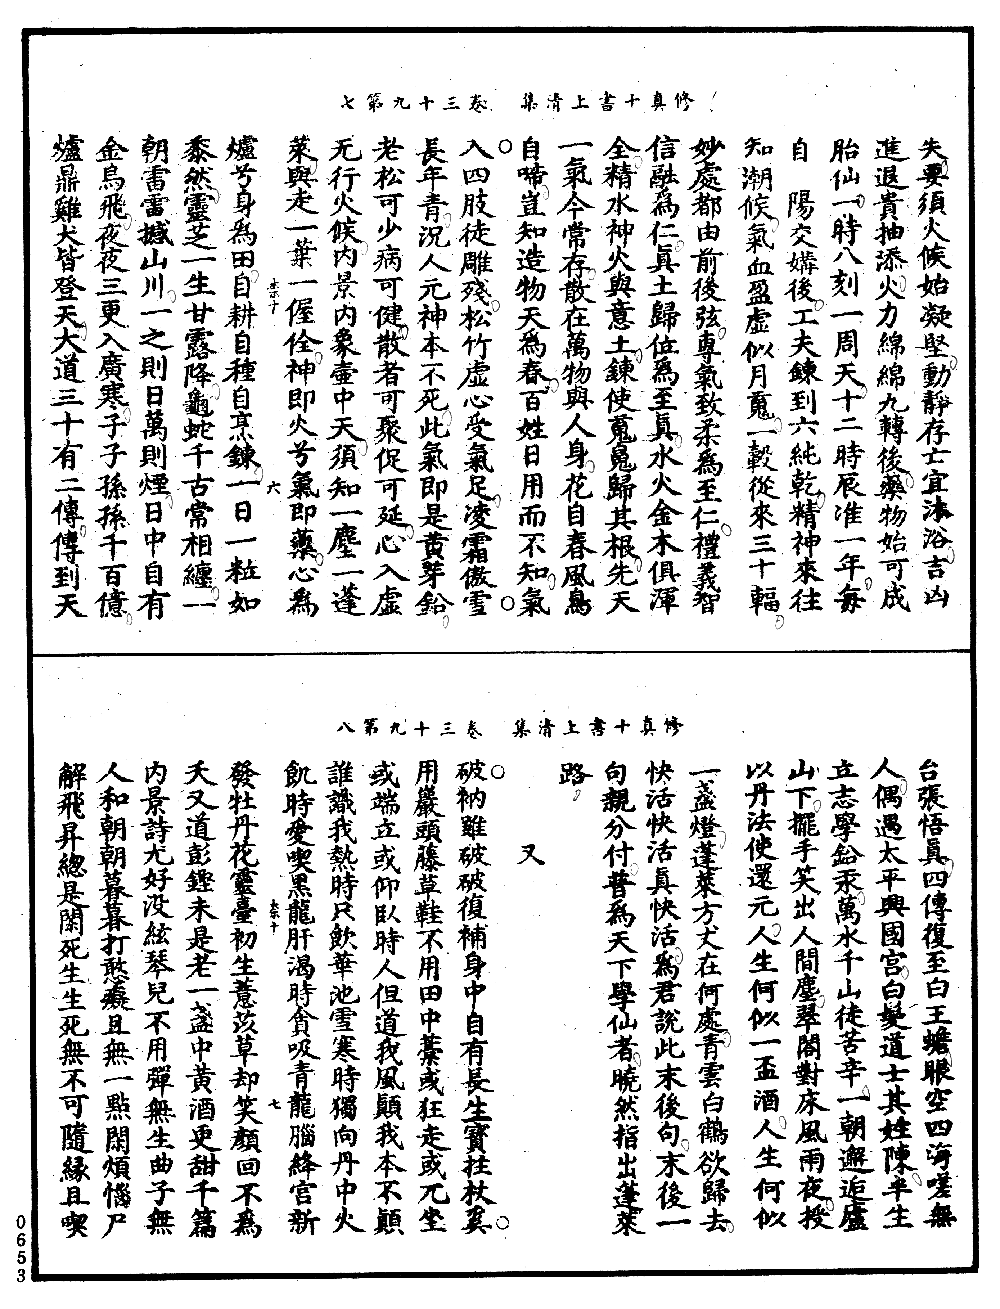 修真十書上清集　卷三十九第七
失要須火候始凝堅動靜存亡宜沐浴吉凶
進退貴抽添火力綿綿九轉後藥物始可成
胎仙一時八刻一周天十二時辰准一年每
自　陽交媾後工夫鍊到六純乾精神來往
知潮候氣血盈虛似月䰟一轂從來三十輻
妙處都由前後弦專氣致柔爲至仁禮義智
信融為仁真土歸位爲至真水火金木俱渾
全精水神火與意土鍊使䰟魄歸其根先天
一氣今常存散在萬物與人身花自春風鳥
自啼豈知造物天爲春百姓日用而不知氣
入四肢徒雕殘松竹虛心受氣足凌霜傲雪
長年青況人元神本不死此氣即是黃芽鉛
老松可少病可健散者可聚促可延心入虛
无行火候内景内象壷中天須知一塵一蓬
萊與走一葉一偓佺神即火兮氣即藥心爲
爐兮身為田自耕自種自烹鍊一日一粒如
黍然靈芝一生甘露降龜蛇千古常相纏一
朝雷雷撼山川一之則日萬則煙日中自有
金烏飛夜夜三更入廣寒子子孫孫千百億
爐鼎雞犬皆登天大道三十有二傳傳到天
柰十　六
修真十書上清集　卷三十九第八
台張悟真四傳復至白玉蟾眼空四海嗟無
人偶遇太平興國宮白髮道士其姓陳平生
立志學鉛汞萬水千山徒苦辛一朝邂逅廬
山下擺手笑出人間塵翠閣對床風雨夜授
以丹法使還元人生何似一盃酒人生何似
一盞燈蓬萊方丈在何處青雲白鶴欲歸去
快活快活真快活爲君說此末後句末後一
句親分付普為天下學仙者曉然指出蓬萊
路
又
破衲雖破破復補身中自有長生寶拄杖奚
用巖頭藤草鞋不用田中藁或狂走或兀坐
或端立或仰臥時人但道我風顛我本不顛
誰識我熱時只飲華池雪寒時獨向丹中火
飢時愛喫黑龍肝渴時貪吸青龍腦絳宮新
發牡丹花靈臺初生薏苡草却笑顏回不爲
夭又道彭鏗未是老一盞中黃酒更甜千篇
内景詩尤好没絃琴兒不用彈無生曲子無
人和朝朝暮暮打憨癡且無一點閑煩惱尸
解飛昇總是閑死生生死無不可隨緣且喫
柰十　七
0653